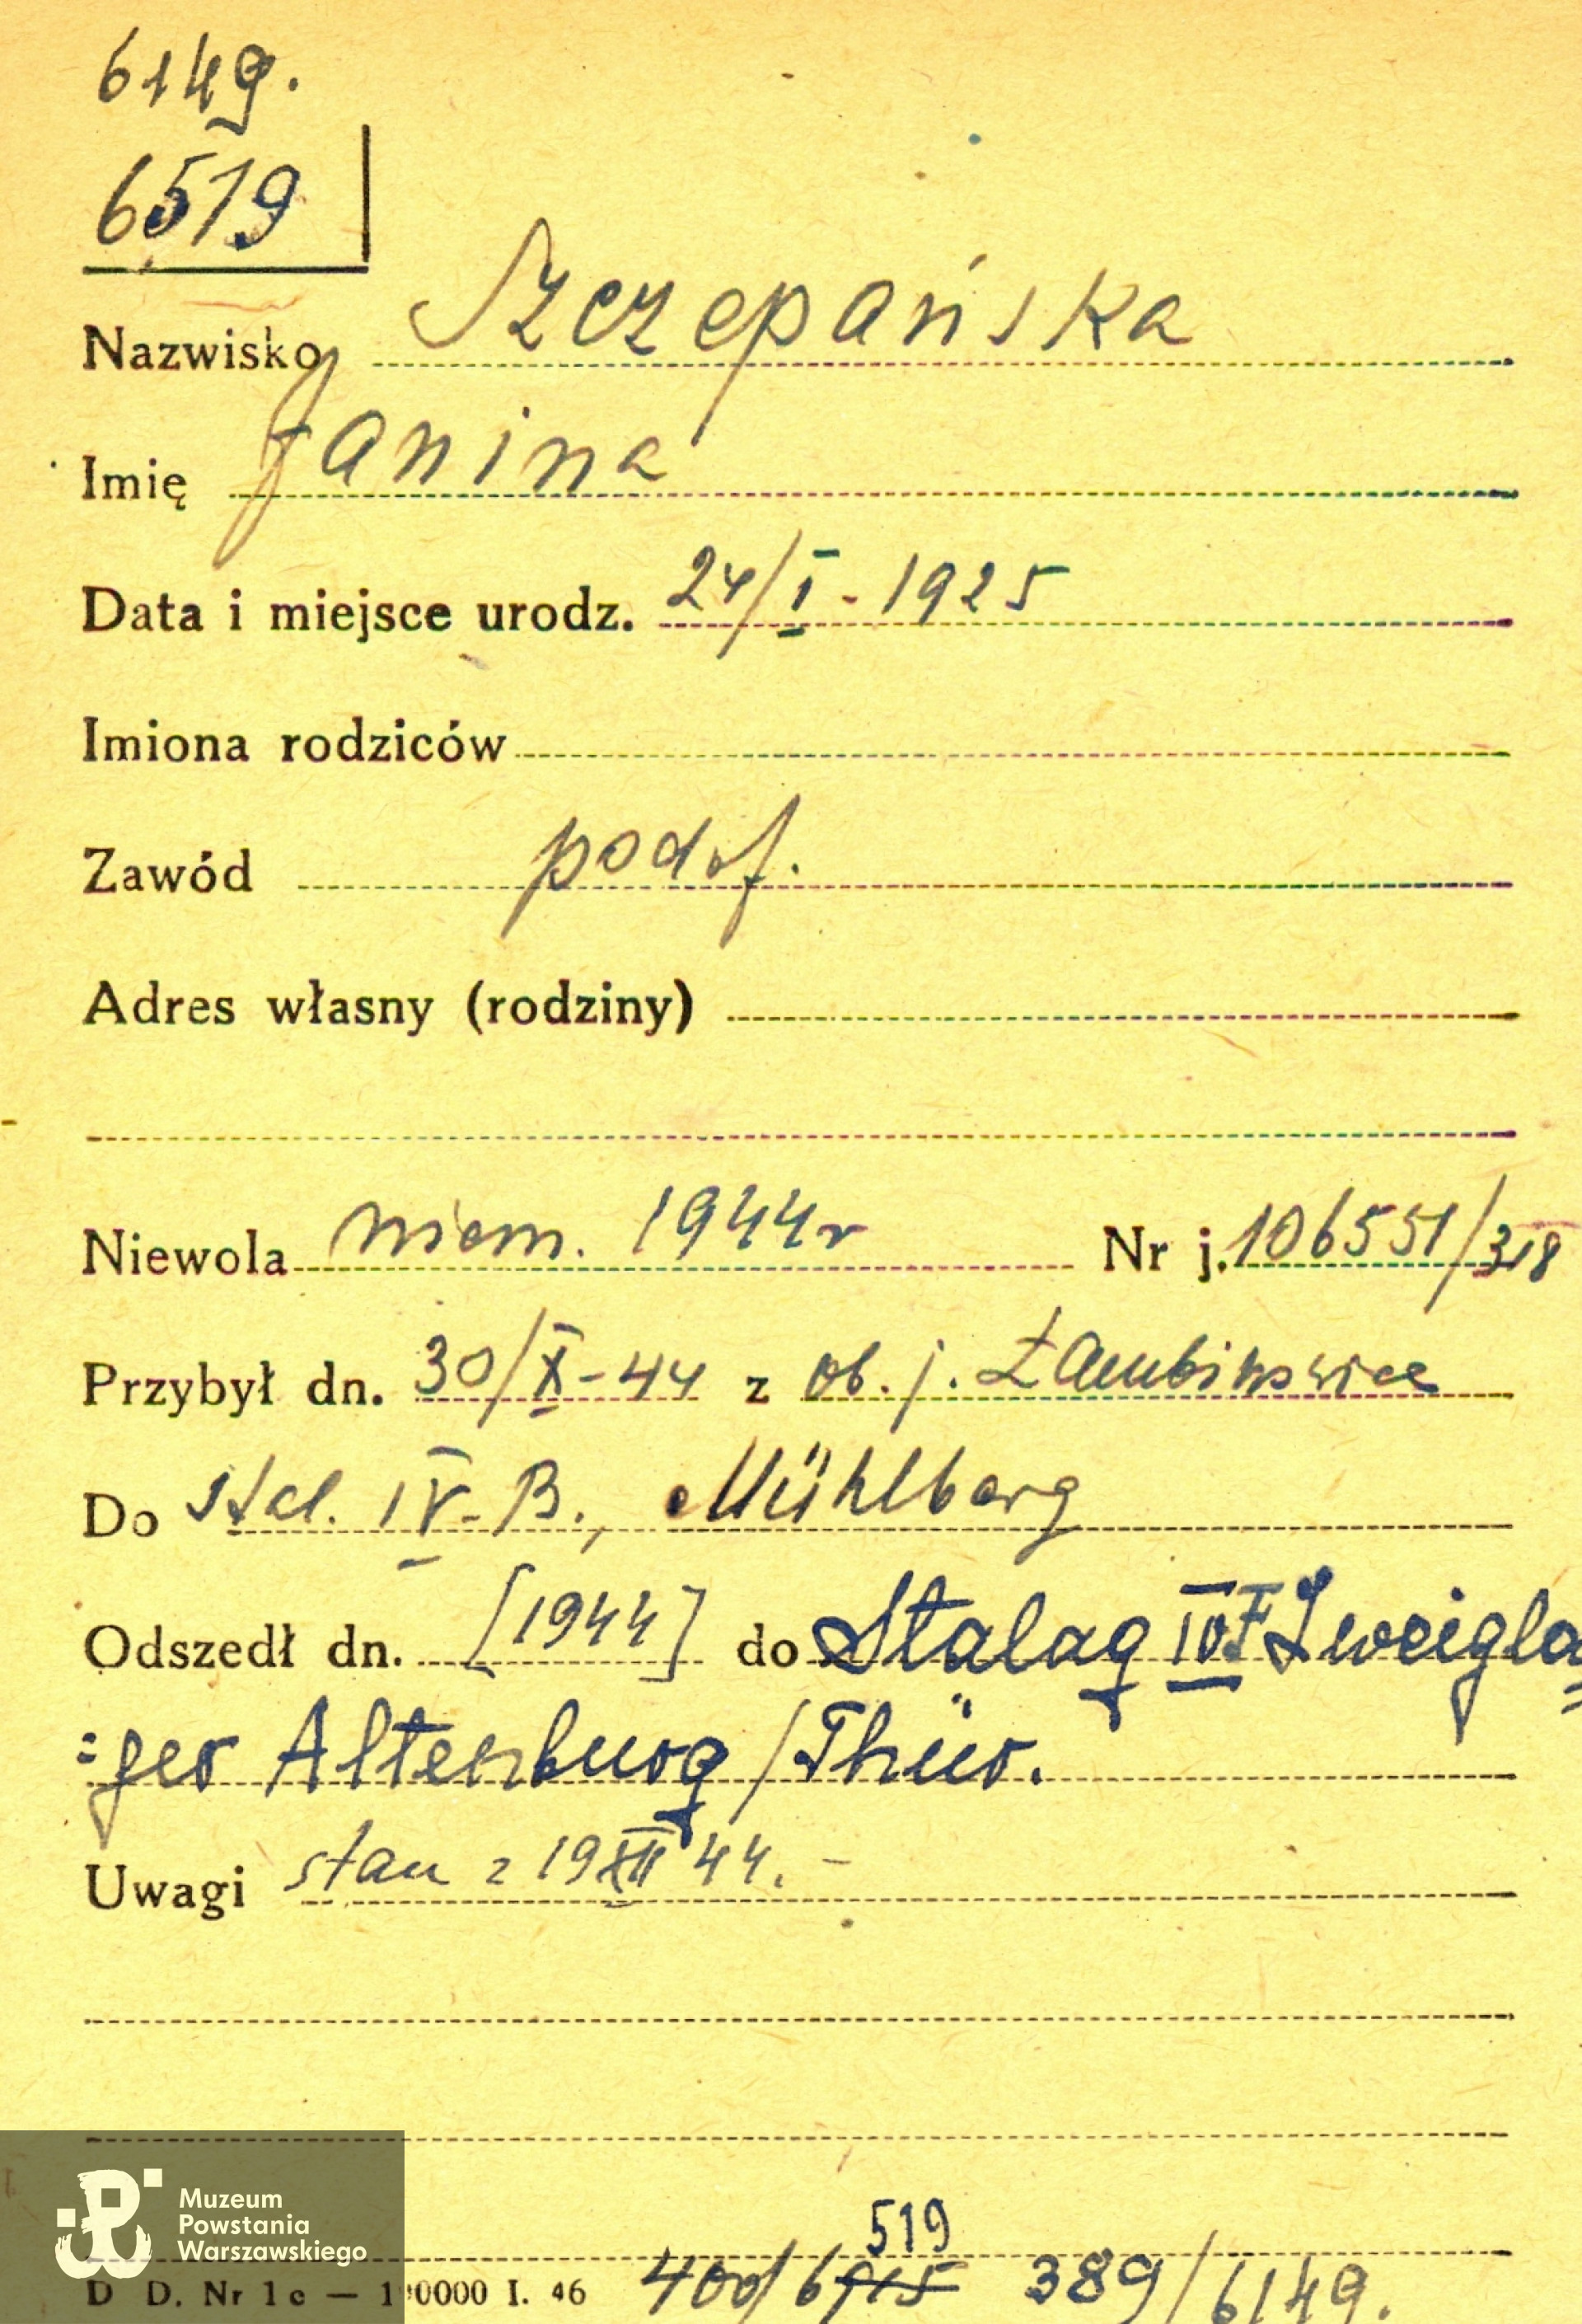 6149.
6519
Nazwisko Szczepańska
Imię Janina
Data i miejsce urodz. 24/I - 1925
Imiona rodziców
Zawód podof.
Adres własny (rodziny)
Niewola niem. 1944r Nr j. 106551/318
Przybył dn. 30/X - 44 z ob. j. Łambinowice
Do stal. IV-B., Mühlberg
Odszedł dn. [1944] do Stalag IVF Zweigla
=ger Altenburg/Thür.
Uwagi stan z 19 XII 44. -
519
D D. Nr 1c — 1 0000 I. 46 400/6 389/6149.
Muzeum
Powstania
Warszawskiego